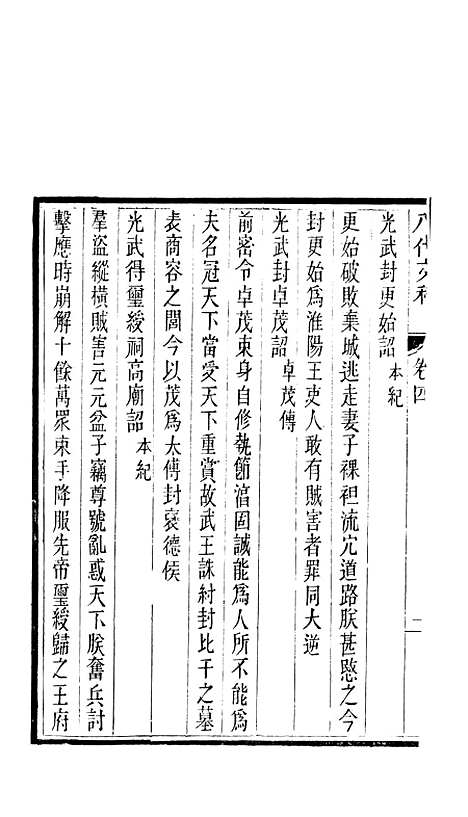 八代文粹 卷四 二
光武封更始詔 本紀
更始破敗棄城逃走妻子裸袒流宂道路朕甚愍之今
封更始爲淮陽王吏人敢有賊害者罪同大逆
光武封卓茂詔 卓茂傳
前密令卓茂束身自修執節淳固誠能爲人所不能爲
夫名冠天下當受天下重賞故武王誅紂封比干之墓
表商容之閭今以茂爲太傅封襃德侯
光武得璽綬祠高廟詔 本紀
羣盜縱橫賊害元元盆子竊尊號亂惑天下朕奮兵討
擊應時崩解十餘萬眾束手降服先帝璽綬歸之王府